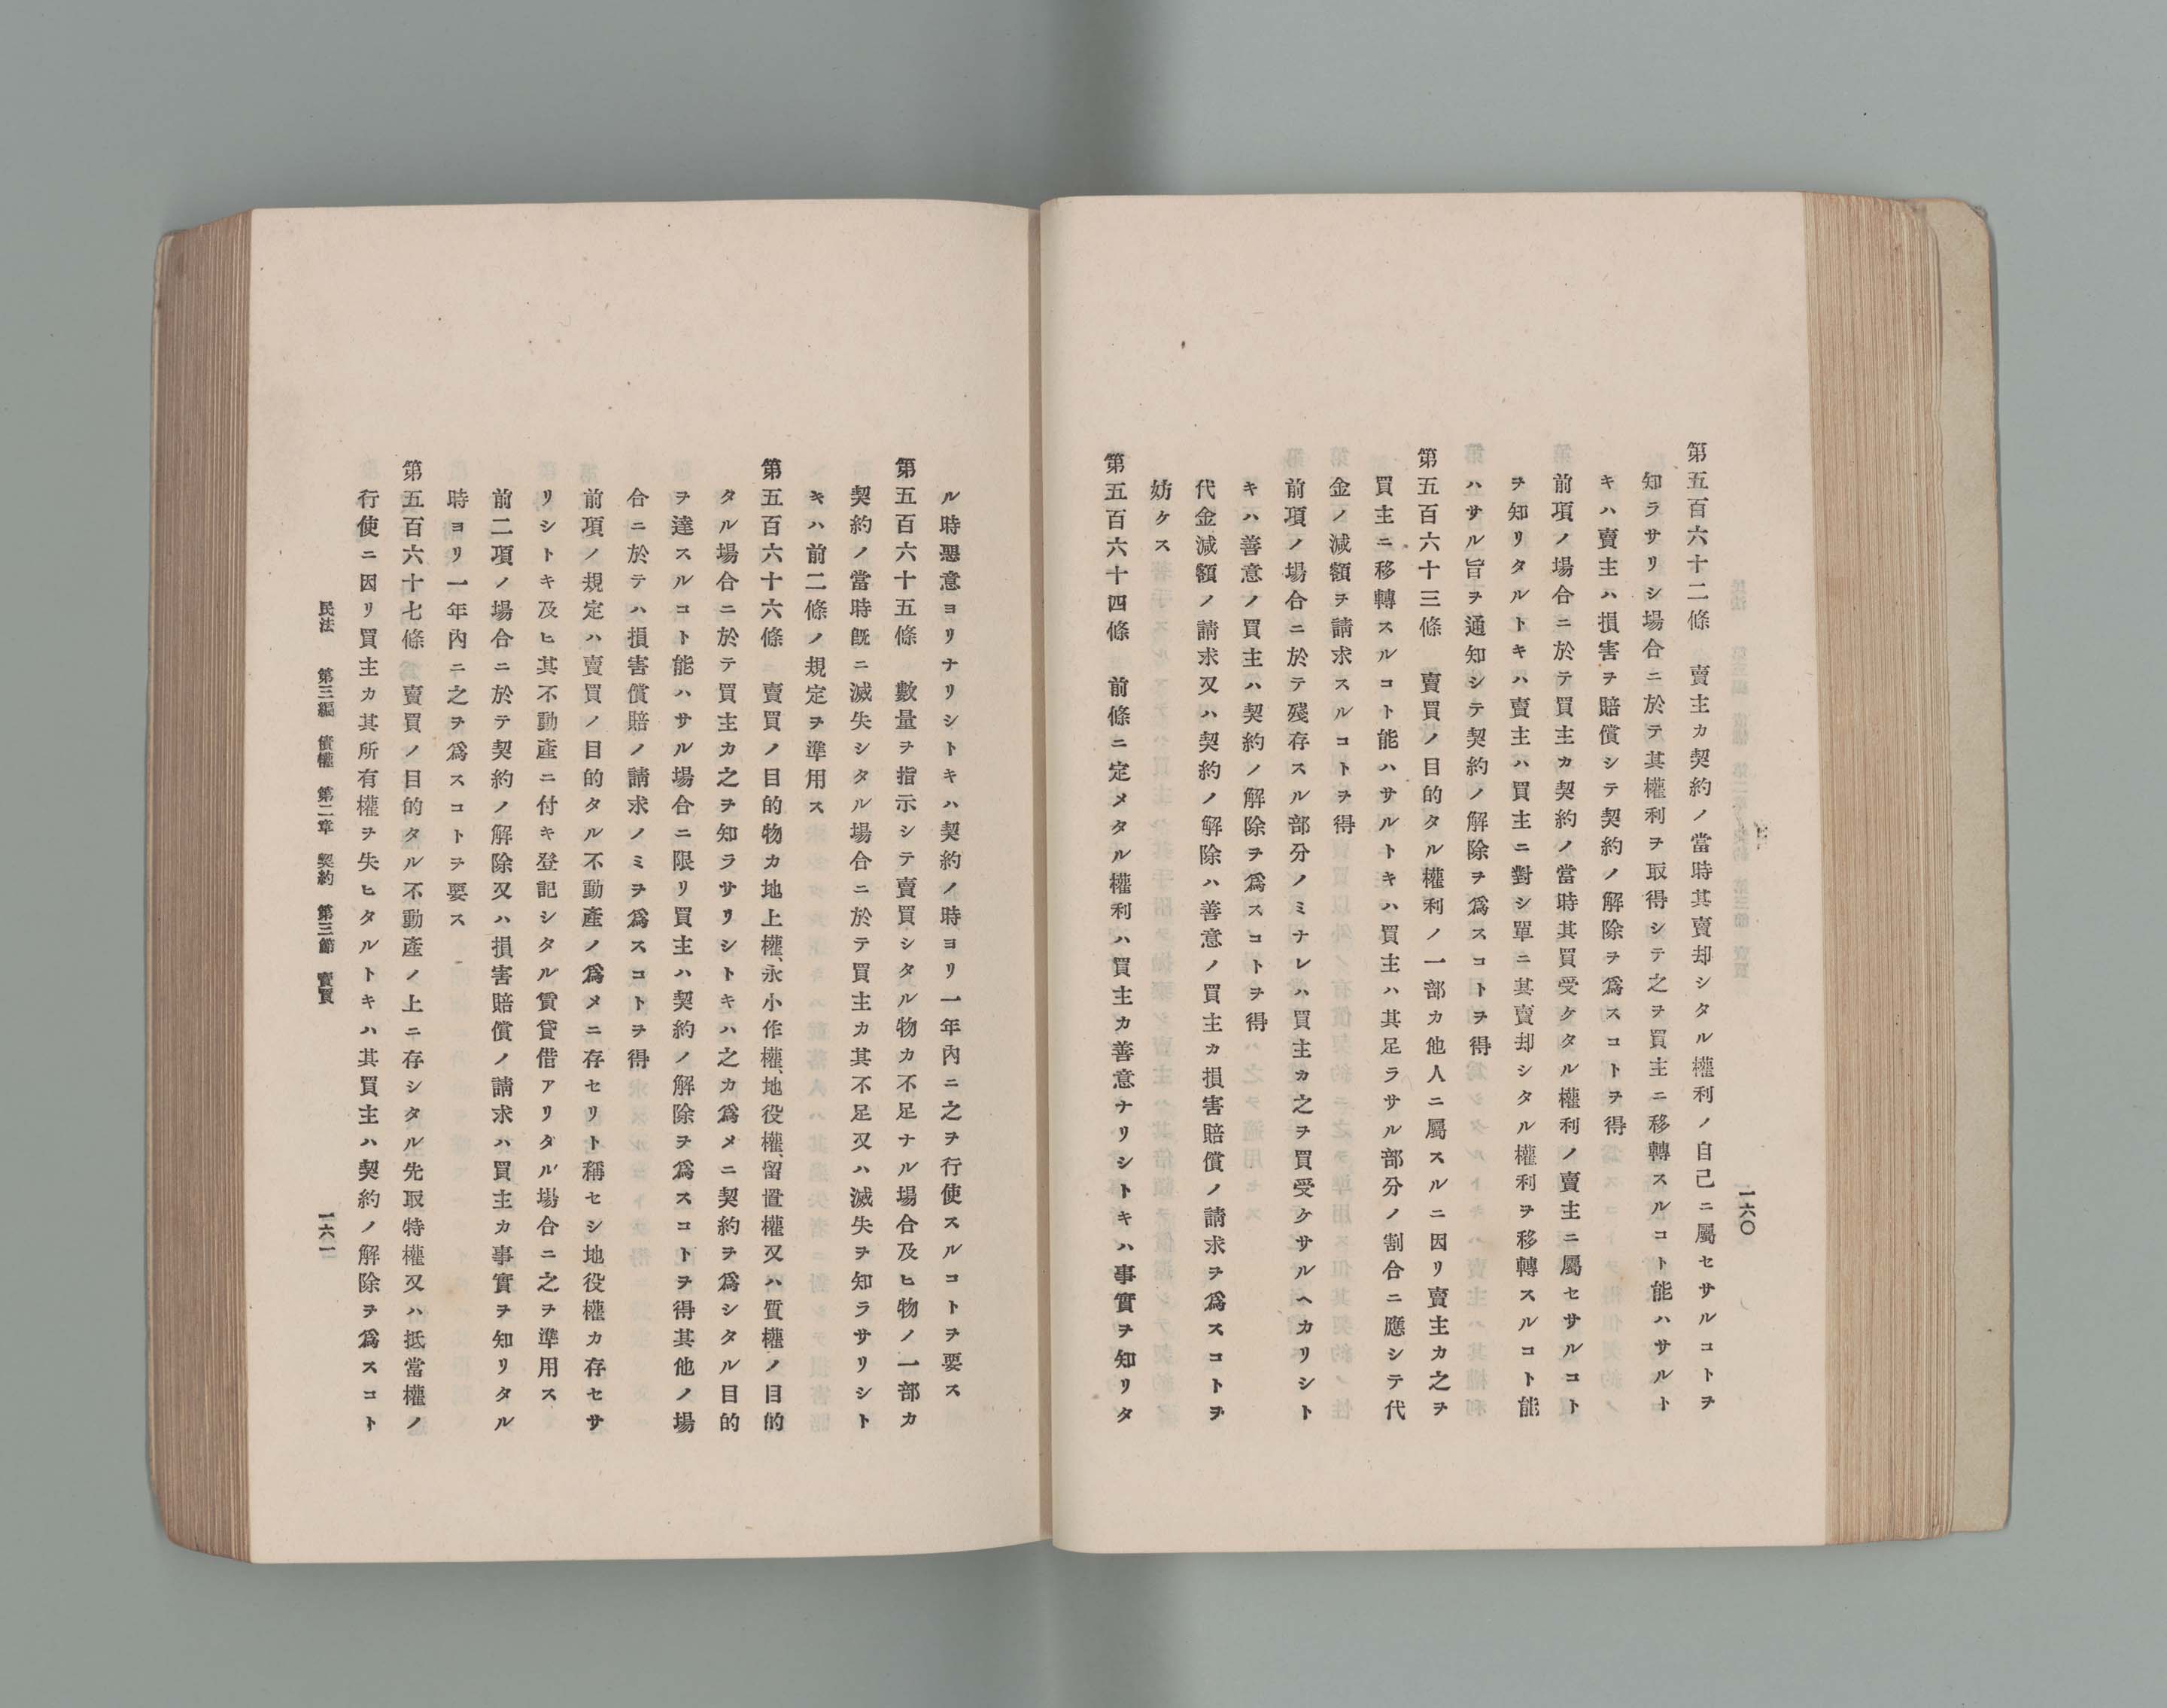 第五百六十二條　賣主カ契約ノ當時其賣却シタル權利ノ自己ニ屬セサルコトヲ
知ラサリシ場合ニ於テ其權利ヲ取得シテ之ヲ買主ニ移轉スルコト能ハサルト
キハ賣主ハ損害ヲ賠償シテ契約ノ解除ヲ爲スコトヲ得
前項ノ場合ニ於テ買主カ契約ノ當時其買受ケタル權利ノ賣主ニ屬セサルコト
ヲ知リタルトキハ賣主ハ買主ニ對シ單ニ其賣却シタル權利ヲ移轉スルコト能
ハサル旨ヲ通知シテ契約ノ解除ヲ爲スコトヲ得
第五百六十三條　賣買ノ目的タル權利ノ一部カ他人ニ屬スルニ因リ賣主カ之ヲ
買主ニ移轉スルコト能ハサルトキハ買主ハ其足ラサル部分ノ割合ニ應シテ代
金ノ減額ヲ請求スルコトヲ得
前項ノ場合ニ於テ殘存スル部分ノミナレハ買主カ之ヲ買受ケサルヘカリシト
キハ善意ノ買主ハ契約ノ解除ヲ爲スコトヲ得
代金減額ノ請求又ハ契約ノ解除ハ善意ノ買主カ損害賠償ノ請求ヲ爲スコトヲ
妨ケス
第五百六十四條　前條ニ定メタル權利ハ買主カ善意ナリシトキハ事實ヲ知リタ
一六〇
ル時惡意ヨリナリシトキハ契約ノ時ヨリ一年內ニ之ヲ行使スルコトヲ要ス
第五百六十五條　數量ヲ指示シテ賣買シタル物カ不足ナル場合及ヒ物ノ一部カ
契約ノ當時既ニ滅失シタル場合ニ於テ買主カ其不足又ハ滅失ヲ知ラサリシト
キハ前二條ノ規定ヲ準用ス
第五百六十六條　賣買ノ目的物カ地上權、永小作權、地役權、留置權又ハ質權ノ目的
タル場合ニ於テ買主カ之ヲ知ラサリシトキハ之カ爲メニ契約ヲ爲シタル目的
ヲ達スルコト能ハサル場合ニ限リ買主ハ契約ノ解除ヲ爲スコトヲ得其他ノ場
合ニ於テハ損害償賠ノ請求ノミヲ爲スコトヲ得
前項ノ規定ハ賣買ノ目的タル不動產ノ爲メニ存セリト稱セシ地役權カ存セサ
リシトキ及ヒ其不動產ニ付キ登記シタル賃貸借アリタル場合ニ之ヲ準用ス
前二項ノ場合ニ於テ契約ノ解除又ハ損害賠償ノ請求ハ買主カ事實ヲ知リタル
時ヨリ一年內ニ之ヲ爲スコトヲ要ス
第五百六十七條　賣買ノ目的タル不動產ノ上ニ存シタル先取特權又ハ抵當權ノ
行使ニ因リ買主カ其所有權ヲ失ヒタルトキハ其買主ハ契約ノ解除ヲ爲スコト
民法　第三編　債權　第二章　契約　第三節　賣買　一六一